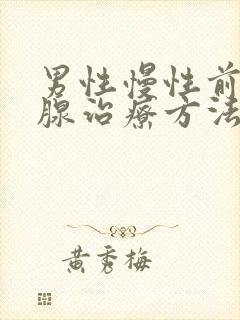 男性慢性前
腺治疗方法
黄秀梅